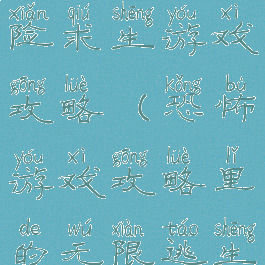 xiǎn qiú shēng yóu xì
险求生游戏
gōng lüè kǒng bù
攻略(恐怖
yóu xì gōng lüè lǐ
游戏攻略里
de wú xiàn táo shēng
的无限逃生